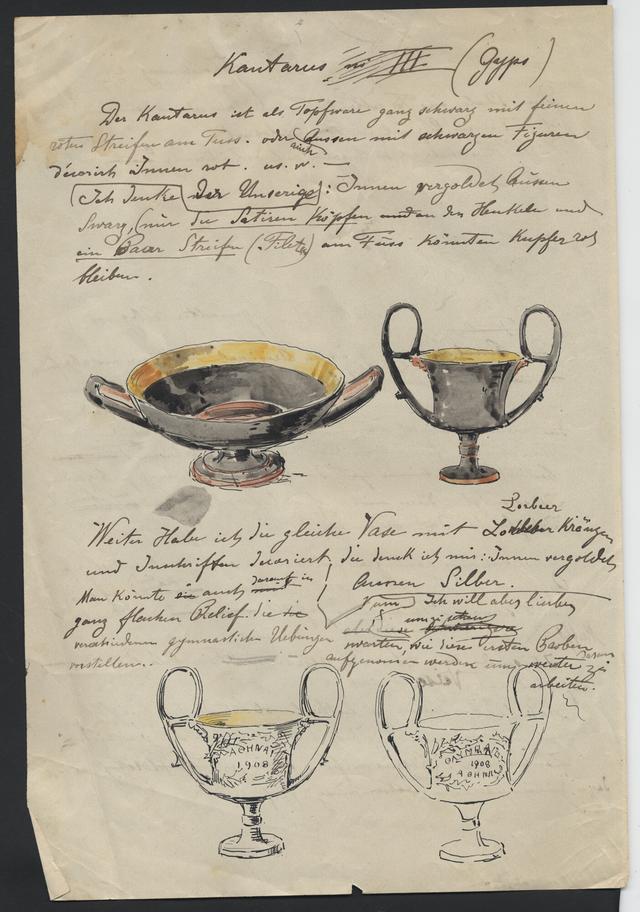 Kantarus III (Gyps)
Der Kantarus ist als Topfware ganz schwarz mit feinen
roten Streifen am Fuss. oder auch Aussen mit schwarzen Figuren
décorirt, Innen rot. us. w. —
(Ich denke der Unserige): Innen vergoldet Aussen
Swarz, (nur die Satiren Köpfen an den Henkeln und
ein Paar Streifen (Filete) am Fuss könnten Kupfer rot
bleiben.
Weiter Habe ich die gleiche Vase mit Lorbeer Kränzen
und Inschriften decoriert, die denk ich mir: Innen vergoldet
Aussen Silber.
Man könnte auch darauf in
ganz flachen Relief die
verschiedenen gymnastischen Uebungen
vorstellen.
Ich will aber lieber
warten, wie diese ersten Proben
aufgenommen werden um weiter zu
arbeiten.
ΑΘΗΝΑΙ
1908
1908
ΑΘΗΝΑΙ